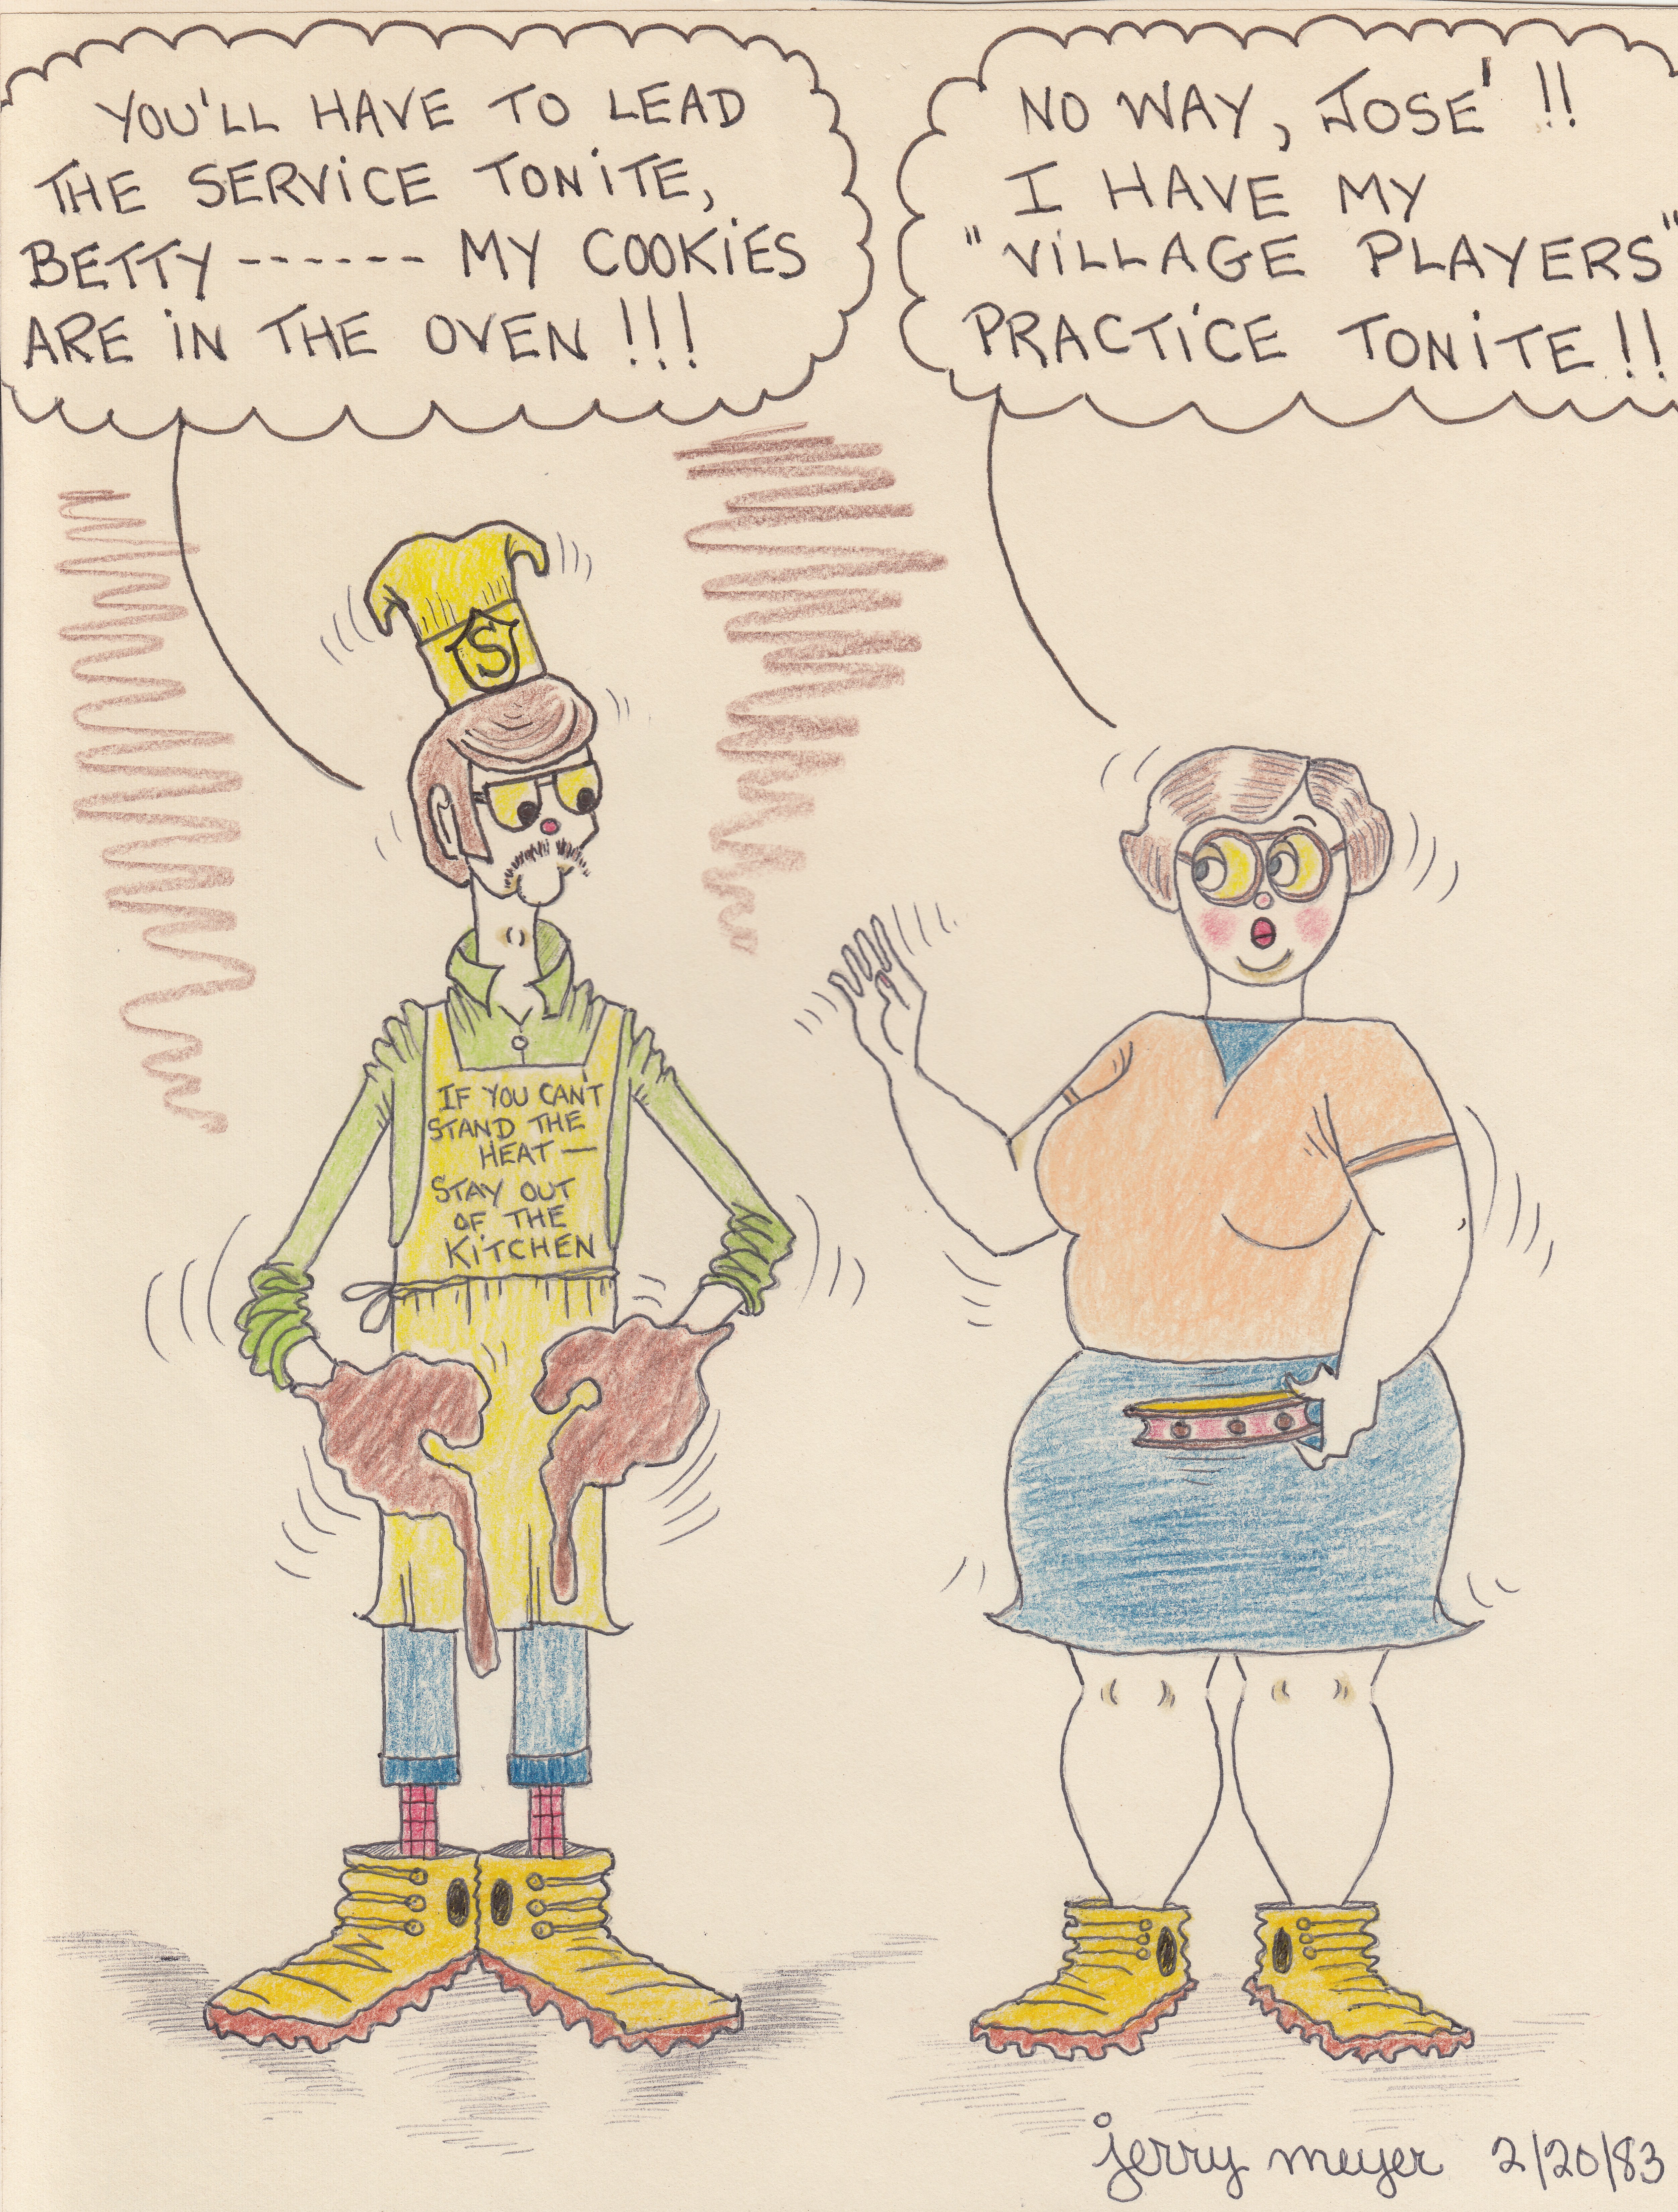 YOU'LL HAVE TO LEAD
THE SERVICE TONITE,
BETTY ------ MY COOKIES
ARE IN THE OVEN !!!
NO WAY, JOSE' !!
I HAVE MY
"VILLAGE PLAYERS"
PRACTICE TONITE!!
S
IF YOU CAN'T
STAND THE
HEAT —
STAY OUT
OF THE
KITCHEN
jerry meyer 2/20/83